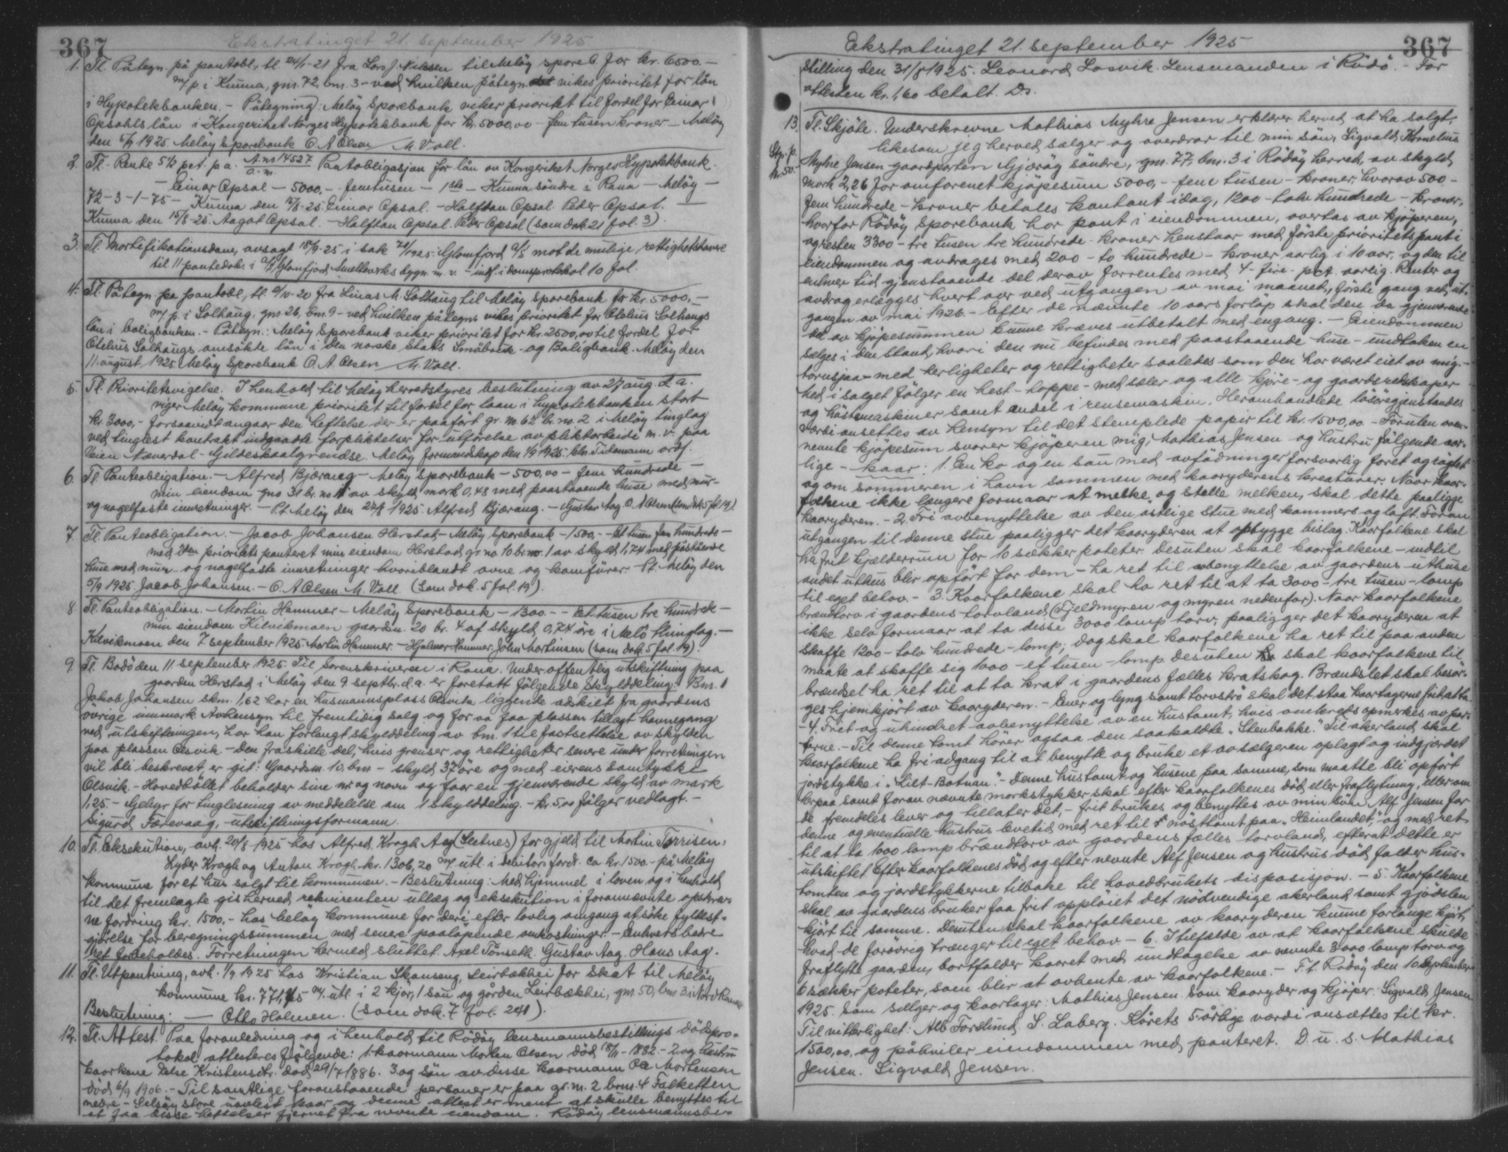 367
Ekstratinget 21. september 1925
1. Tl. Påtegn. på pantobl., tl. 24/1-21 fra Lars J. til Meløy spareb. for kr. 6500.-
m/ p. i Kunna, gnr. 72, bnr. 3 - ved hvilken påtegn. vikes prioritet for lån
i Hypotekbanken. - Påtegning: Meløy Sparebank viker prioritet til fordel for Einar
Opsahls lån i Kongeriket Norges Hypotekbank for kr. 5000,00 - fem tusen kroner - Meløy
den 5/9 1925 Meløy Sparebank O. A. Olsen M. Voll.
2. Tl. Rente 5½ pct. p. a. A. nr. 14527 Pantobligasjon for lån av Kongeriket Norges Hypotekbank.
- Einar Opsal - 5000,- femtusen - 1ste - Kunna søndre i Rana - Meløy -
72 - 3 - 1-75 - Kunna den 15/8-25 Einar Opsal. - Halftan Opsal Peder Opsal. -
Kunna den 15/8-25 Aagot Opsal - Halftan Opsal Peder Opsal (som dok. 21 fol. 3).
3. Tl. Mortifikationsdom, avsagt 18/8-25 i sak 71/1925: Glomfjord A/S mot de mulige rettighetshavere
til 11 pantedok. i A/S Glomfjord Smelteverks bygn. m. v. - indf. i domsprotokol 10 fol.
4. Tl. Påtegn. på pantobl., tl. 9/10-20 fra Linas M. Solhaug til Meløy Sparebank for kr. 5000,-
m/ p. i Solhaug. gnr. 26, bnr. 9 - ved hvilken påtegn. vikes prioritet for Otelius Solhaugs
lån i boligbanken. - Påtegn.: Meløy Sparebank viker prioritet for kr. 2500,00 til fordel for
Otelius Solhaugs ansøkte lån i Den norske Stats Småbruk- og Boligbank. Meløy den
11. august 1925 Meløy Sparebank O. A. Olsen M. Voll.
5. Tl. Prioritetsvigelse. I henhold til Meløy herredsstyres beslutning av 27 aug. d. a.
viger Meløy kommune prioritet til fordel for laan i hypotekbanken stort
kr. 3000,- forsaavidt angaar den heftelse der er paaført gr. nr. 62 br. nr. 2 i Meløy tinglag
ved tinglæst kontrakt indgaatte forpliktelser for utførelse av pliktarbeide m. v. paa
Veien - Gildeskaalgrendse. Meløy formandskap den 19/9 1925. Tidemann ordf.
6. Tl. Panteobligation. - Alfred Bjærang - Meløy Sparebank - 500,00 - fem hundrede -
min eiendom gnr. 31 br. nr. 11 av skyld mark 0,43 med paastaaende huse med mur-
og nagelfaste innretninger. - Pt. Meløy den 24/8 1925 Alfred Bjærang. - Gustav Aag O. A. Olsen (som dok. 5 fol. 19).
7. Tl. Panteobligation. - Jacob Johansen Hærstad - Meløy Sparebank - 1500,- - et tusen fem hundrede -
med prioritets panteret min eiendom Hærstad gr. no. 10 br. nr. 1 av skyld 1,74 med påstående
huse med mur- og nagelfaste innretninger hvoriblandt ovne og komfurer. Pt. Meløy den
5/9 1925 Jacob Johansen. - O. A. Olsen M. Voll (som dok. 5 fol. 19).
8. Tl. Panteobligation. - Martin Hammer - Meløy Sparebank - 1300 - - et tusen tre hundrede -
min eiendom Kilvikmoen gaardnr. 20 br. 4 af skyld 0,74 øre i Melø thinglag. -
Kilvikmoen den 7 september 1925 Martin Hammer - Hjalmar Hammer, John Martinsen (som dok. 5 fol. 19).
9. Tl. Bodø den 11 september 1925. Til Sorenskriveren i Rana. Under offentlig utskiftning paa
gaarden Hærstad i Meløy den 9 septbr. d. a. er foretatt følgende skylddeling. Bnr. 1
Jakob Johansen skm. 1,62 har en husmannsplass Olsvika liggende adskilt fra gaardens
øvrige innmark. Av hensyn til fremtidig salg og for aa faa plassen tillagt havnegang
ved utskiftningen, har han forlangt skylddeling av bnr. 1 til fastsettelse av skylden
paa plassen Olsvik. - Den fraskilte del, hvis grenser og rettigheter senere under forretningen
vil bli beskrevet, er git: Gaardnr. 10, bnr. - skyld 37 øre og med eierens samtykke
Olsvik. - Hovedbøllet beholder sine nr. og navn og faar en gjenværende skyld av mark
1,25. - Gebyr for tinglesning av meddelelse om 1 skylddeling - kr. 5,00 følger vedlagt. -
Sigurd Færevaag, utskiftningsformann.
10. Tl. Eksekution, avh. 20/8 1925 hos Alfred Krogh Aag (Setnes) for gjeld til Martin Torrisen,
Hyder Krogh og Anton Krogh, kr. 1306,20 m/ utl. i debitors ford. ca. kr. 1500.- på Meløy
kommune for et hus solgt til kommunen. - Beslutning: Med hjemmel i loven og i henhold
til det fremlagte gis herved rekvirenten utlæg og eksekution i forannevnte opskrev-
ne fordring kr. 1500.- hos Meløy kommune for deri efter lovlig omgang at søke fyldest-
gjørelse for beregningssummen med senere paaløpende omkostninger. - Enhvers bedre
ret forbeholdes. Forretningen hermed sluttet. Axel Tønseth. Gustav Aag. Hans Aag.
11. Tl. Utpantning, avh. 1/9 1925 hos Kristian Skanseng, Leirbækhei for skat til Meløy
kommune kr. 771,75 m/ utl. i 2 kjør, 1 sau og gården Leirbækhei, gnr. 50, bnr. 3 i Nord Rana
Beslutning: - Otto Holmen. (som dok. 7 fol. 241).
12. Tl. Attest. Paa foranledning og i henhold til Rødøy lensmannsbestillings dødspro-
tokol attesteres følgende: 1. kaarmann Morten Olsen død 18/7-1892 - 2. og hustru
kaarkone Else Kristensdtr. død 29/7 1886. 3. og søn av disse kaarmann Ole Mortensen
død 6/9 1906. - Til samtlige foranstaaende personer er paa gr. nr. 2 brnr. 4 Falketten
nedre - Selsøy store avløst kaar og denne attest er ment at skulle benyttes til
at faa disse heftelser fjernet fra nevnte eiendom. Rødøy lensmannsbe-
367
Ekstratinget 21 september 1925
stilling den 31/8 1925. Leonard Losvik. Lensmanden i Rødø. - For
attesten kr. 1,60 betalt. Ds.
13. Tl. Skjøte. Underskrevne Mathias Myhre Jensen erklærer herved at ha solgt,
likesom jeg herved sælger og overdrar til min søn, Sigvald Kornelius
Myhre Jensen gaardparten Gjerøy søndre, gnr. 77, bnr. 3 i Rødøy herred, av skyld
mark 2,26 for omforenet kjøpesum 5000,- fem tusen - kroner, hvorav 500 -
fem hundrede - kroner betales kontant idag, 1200 - tolv hundrede - kroner,
hvorfor Rødøy Sparebank har pant i eiendommen, overtas av kjøperen,
og resten 3300 - tre tusen tre hundrede - kroner henstaar med første prioritets pant i
eiendommen og avdrages med 200 - to hundrede - kroner aarlig i 10 aar, og den til
enhver tid gjenstaaende del derav forrentes med 4 - fire - pct. aarlig. Renter og
avdrag erlægges hvert aar ved utgangen av mai maaned, første gang ved ut-
gangen av mai 1926. - Efter de nævnte 10 aars forløp skal den da gjenværende
del av kjøpesummen kunne kræves utbetalt med engang. - Eiendommen
sælges i den stand, hvori den nu befinder med paastaaende huse - undtaken en
torvsjaa - med herligheter og rettigheter saaledes som den har været eiet av mig. -
Med i salget følger en hest - hoppe - med seler og alle kjøre- og gaardsredskaper
og høstmaskiner samt andel i rensemaskin. Heromhandlede løsøregjenstandes
værdi ansettes av hensyn til det stemplede papir til kr. 1500,00. - Foruten oven-
nevnte kjøpesum svarer kjøperen mig, Mathias Jensen og hustru følgende aar-
lige - kaar: 1. En ko og en sau med avfødninger forsvarlig foret og røgtet
og om sommeren i havn sammen med kaaryderens kreaturer. Naar kaar-
folkene ikke længere formaar at melke og stelle melken, skal dette paaligge
kaaryderen. - 2. Fri avbenyttelse av den østlige stue med kammers og loft. Foran
utgangen til denne stue paaligger det kaaryderen at opbygge bislag. Kaarfolkene skal
ha frit kjælderrum for 10 sækker poteter desuten skal kaarfolkene - indtil
andet uthus blir opført for dem - ha ret til avbenyttelse av gaardens uthuse
til eget behov. - 3. Kaarfolkene skal ha ret til at ta 3000 - tre tusen - lamp
brendtorv i gaardens torvland (Fjeldmyren og myren nedenfor). Naar kaarfolkene
ikke selv formaar at ta disse 3000 lamp torv, paaligger det kaaryderen at
skaffe 1200 - tolv hundrede - lamp; dog skal kaarfolkene ha ret til paa anden
maate at skaffe sig 1000 - et tusen - lamp desuten skal kaarfolkene til
brændsel ha ret til at ta krat i gaardens fælles kratskog. Brændslet skal besør-
ges hjemkjørt av kaaryderen. - Ener og lyng samt torvstrø skal det staa kaartagerne frit at ta
4. Fret og uhindret avbenyttelse av en hustomt, hvis omkreds opmerkes av par-
terne. - Til denne tomt hører ogsaa den saakaldte "Stenbakke". Til akerland skal
kaarfolkene ha fri adgang til at benytte og bruke et av sælgeren oplagt og indgjerdet
jordstykke i "Litl-Botnan". - Denne hustomt og husene paa samme, som maatte bli opført
herpaa samt foran nævnte markstykker skal efter kaarfolkenes død eller fraflytning, eller om
de fremdeles lever og tillater det, - frit brukes og benyttes av min søn Alf Jensen for
denne og eventuelle hustrus levetid med ret til nøsttomt paa "Heimlandet," og med ret
til at ta 1000 lamp brændtorv av gaardens fælles torvland, efterat dette er
utskiftet. Efter kaarfolkenes død og efter nævnte Alf Jensen og hustrus død falder hus-
tomten og jordstykkerne tilbake til hovedbrukets disposisjon. - 5. Kaarfolkene
skal av gaardens bruker faa frit oppløiet det nødvendige åkerland samt gjødslen
kjørt til samme. Desuten skal kaarfolkene av kaaryderen kunne forlange kjørt
hvad de forøvrig trenger til eget behov. - 6. I tilfælde av at kaarfolkene skulde
fraflytte gaarden, bortfalder kaaret med undtagelse av nævnte 3000 lamp torv og
6 sækker poteter, som blir at avhente av kaarfolkene. - Pt. Rødøy den 10 september
1925. Som sælger og kaartager: Mathias Jensen Som kaaryder og kjøper: Sigvald Jensen
Til vitterlighet: Alb. Fordlund, S. Laberg. Kårets 5-årlige værdi ansættes til kr.
1500,00, og påhviler eiendommen med panteret. D. u. s. Mathias
Jensen. Sigvald Jensen.